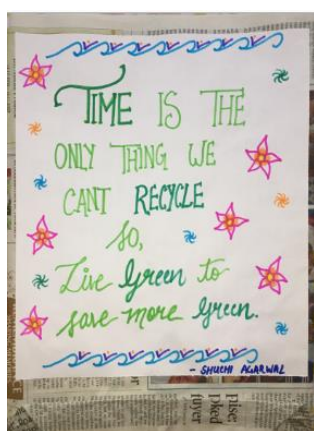 TIME IS THE
ONLY THING WE
CANT RECYCLE
SO,
Live Green to
save more Green.
- SHUCHI AGARWAL